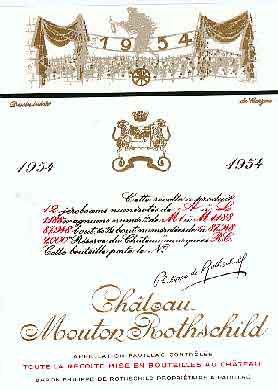 1954
Dessin inédit
de Carzou
1954 1954
Cette récolte a produit
12 jéroboams numérotés de
1188 magnums numérot. de M1 à M1188
87.948 bout. et 1/2 bout. numérotées de 1 à 87.948
2.000 Réserve du Château marquées R.C.
Cette bouteille porte le No.
Ph. de Rothschild
Château
Mouton Rothschild
APPELLATION PAUILLAC CONTRÔLÉE
TOUTE LA RÉCOLTE MISE EN BOUTEILLES AU CHÂTEAU
BARON PHILIPPE DE ROTHSCHILD PROPRIÉTAIRE A PAUILLAC